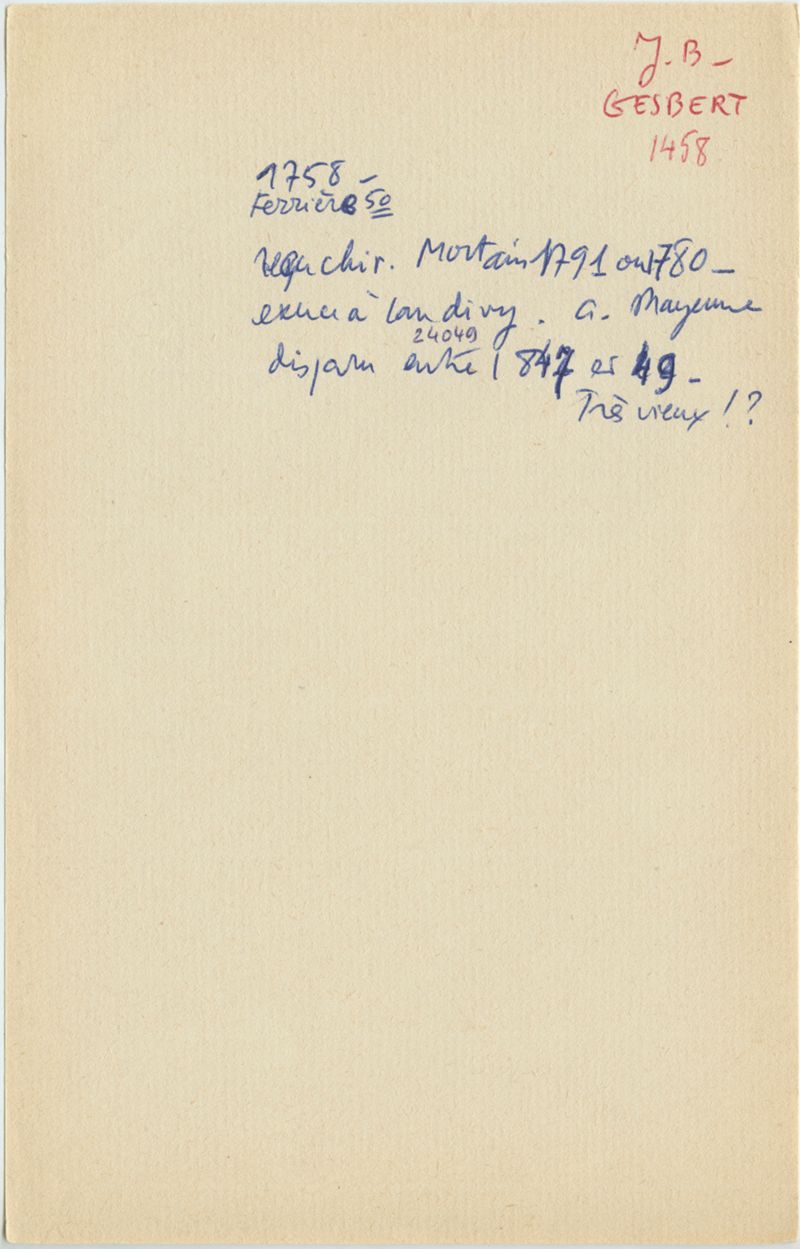 J. B -
GESBERT
1458
1758 -
Ferrière 50
reçu chir. Mortain 1791 ou 1780 -
exerce à Landivy. a. Mayenne
24049
disparu entre 1847 et 49 -
Très vieux !?